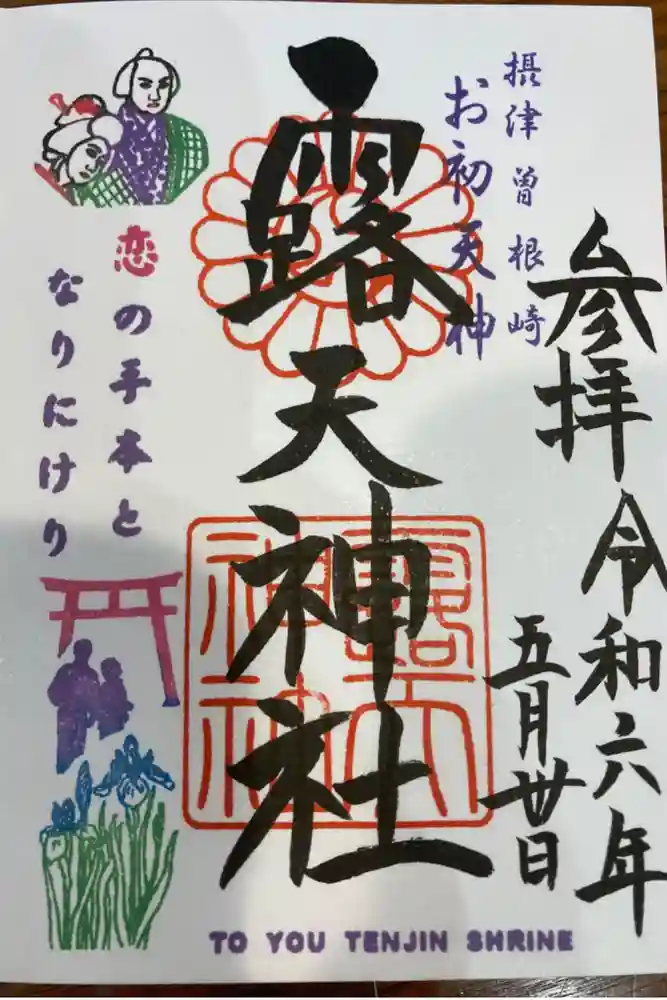 参拝 令和六年
五月丗日
摂津 曽根崎
お初天神
露天神社
恋の手本と
なりにけり
TO YOU TENJIN SHRINE